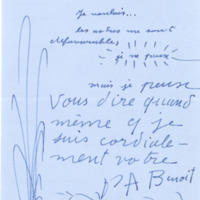 Je voulais...
les autres me sont
je ne peux
mais je peux
vous dire quand
même q je
suis cordiale-
ment votre
PA Benoit